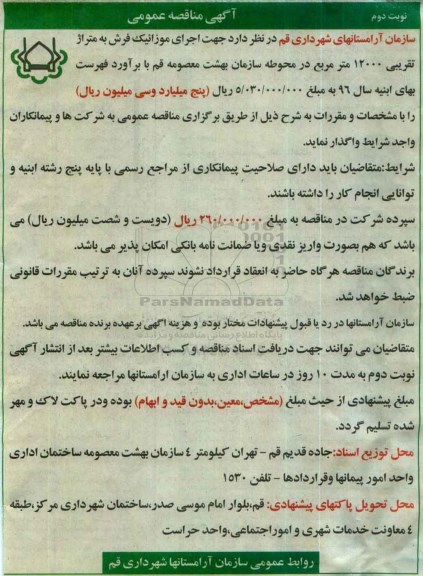 نوبت دوم
آگهی مناقصه عمومی
سازمان آرامستانهای شهرداری قم در نظر دارد جهت اجرای موزائیک فرش به متراژ
تقریبی ۱۲۰۰۰ متر مربع در محوطه سازمان بهشت معصومه قم با برآورد فهرست
بهای ابنیه سال ۹۶ به مبلغ ۵/۰۳۰/۰۰۰/۰۰۰ ریال (پنج میلیارد وسی میلیون ریال)
را با مشخصات و مقررات به شرح ذیل از طریق برگزاری مناقصه عمومی به شرکت ها و پیمانکاران
واجد شرایط واگذار نماید.
شرایط:متقاضیان باید دارای صلاحیت پیمانکاری از مراجع رسمی با پایه پنج رشته ابنیه و
توانایی انجام کار را داشته باشند.
سپرده شرکت در مناقصه به مبلغ ۲۶۰/۰۰۰/۰۰۰ ریال (دویست و شصت میلیون ریال) می
باشد که هم بصورت واریز نقدی ویا ضمانت نامه بانکی امکان پذیر می باشد.
برندگان مناقصه هرگاه حاضر به انعقاد قرارداد نشوند سپرده آنان به ترتیب مقررات قانونی
ضبط خواهد شد.
سازمان آرامستانها در رد یا قبول پیشنهادات مختار بوده و هزینه اگهی برعهده برنده مناقصه می باشد.
متقاضیان می توانند جهت دریافت اسناد مناقصه و کسب اطلاعات بیشتر بعد از انتشار آگهی
نوبت دوم به مدت ۱۰ روز در ساعات اداری به سازمان ارامستانها مراجعه نمایند.
مبلغ پیشنهادی از حیث مبلغ (مشخص،معین،بدون قید و ابهام) بوده ودر پاکت لاک و مهر
شده تسلیم گردد.
محل توزیع اسناد:جاده قدیم قم - تهران کیلومتر ٤ سازمان بهشت معصومه ساختمان اداری
واحد امور پیمانها وقراردادها - تلفن ۱۵۳۰
محل تحویل پاکتهای پیشنهادی: قم،بلوار امام موسی صدر،ساختمان شهرداری مرکز،طبقه
٤ معاونت خدمات شهری و اموراجتماعی،واحد حراست
روابط عمومی سازمان آرامستانها شهرداری قم
ParsNamadData